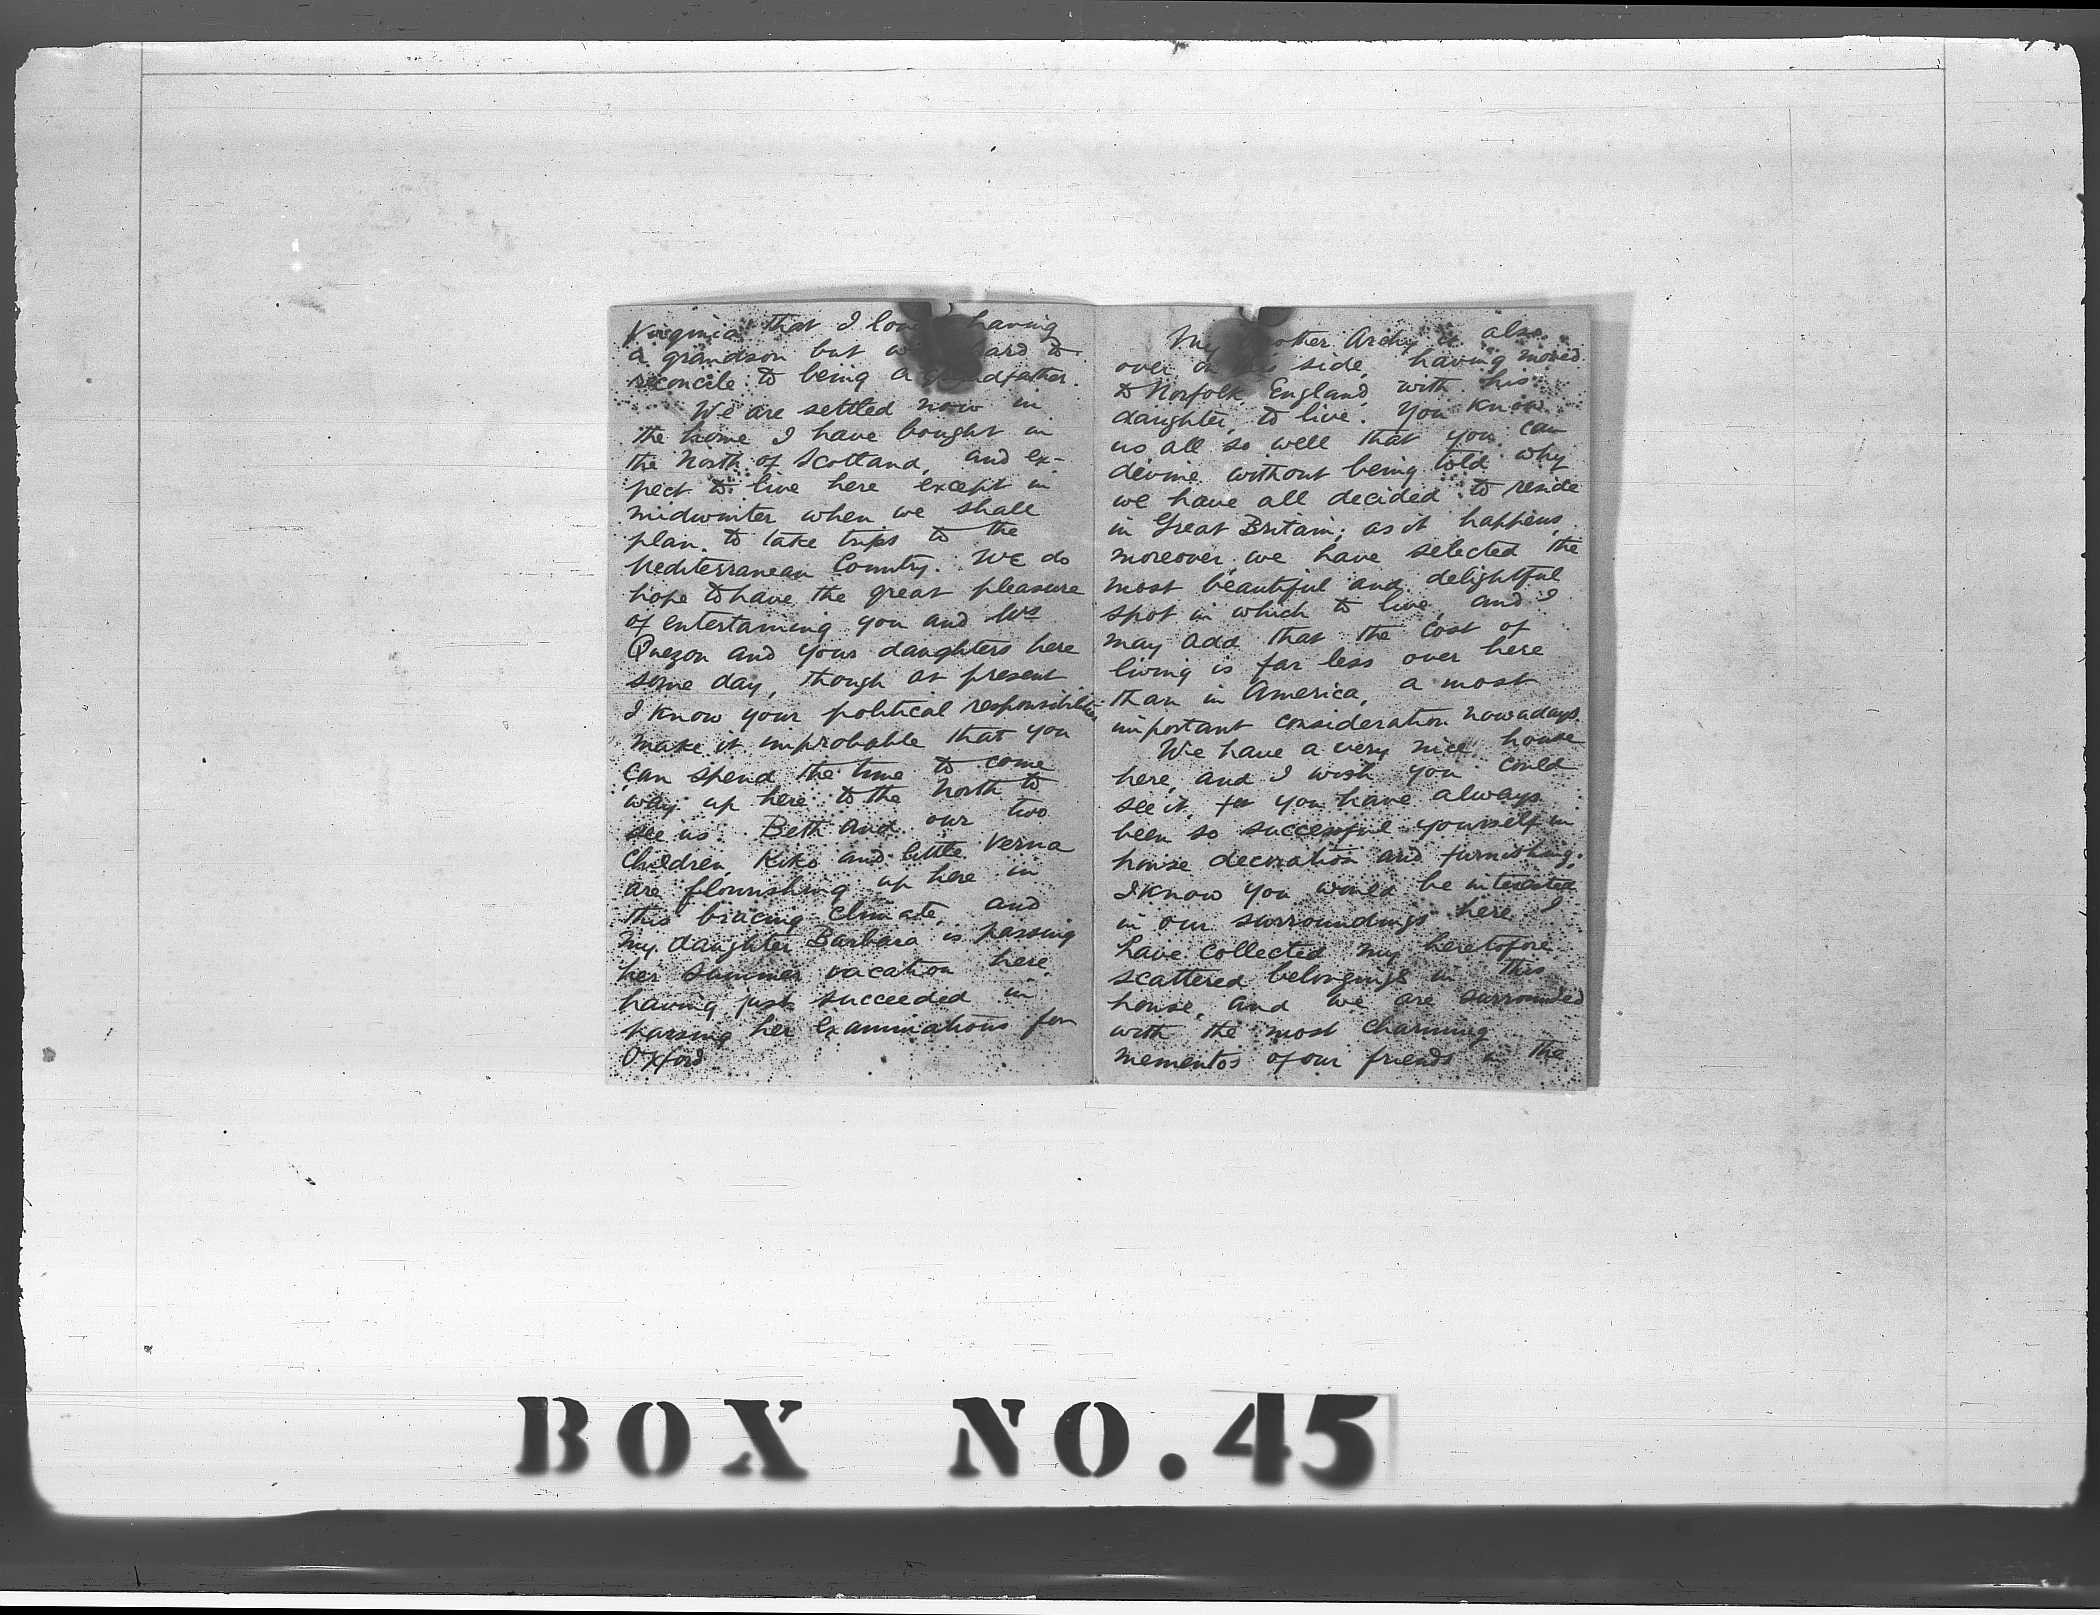 Virginia that I love having
a grandson but hard to
reconcile to being a grandfather.
We are settled now in
the home I have bought in
the North of Scotland, and ex-
pect to live here except in
midwinter when we shall
plan to take trips to the
Mediterranean Country. We do
hope to have the great pleasure
of entertaining you and Mrs
Quezon and your daughters here
some day, though at present
I know your political responsibilities
make it improbable that you
can spend the time to come
way up here to the North to
see us. Beth and our two
children, Kiko and little Verna
are flourishing up here in
this bracing climate, and
my daughter Barbara is passing
her summer vacation here,
having just succeeded in
passing her examinations for
Oxford
My brother Archy is also
over on this side, having moved
to Norfolk, England, with his
daughter, to live. You know
us all so well that you can
devine without being told why
we have all decided to reside
in Great Britain; as it happens,
moreover, we have selected the
most beautiful and delightful
spot in which to live, and I
may add that the cost of
living is far less over here
than in America, a most
important consideration nowadays.
We have a very nice house
here, and I wish you could
see it, for you have always
been so successful yourself in
house decoration and furnishing.
I know you would be interested
in our surroundings here. I
have collected my heretofore
scattered belongings in this
house, and we are surrounded
with the most charming
mementos of our friends in the
BOX NO. 45